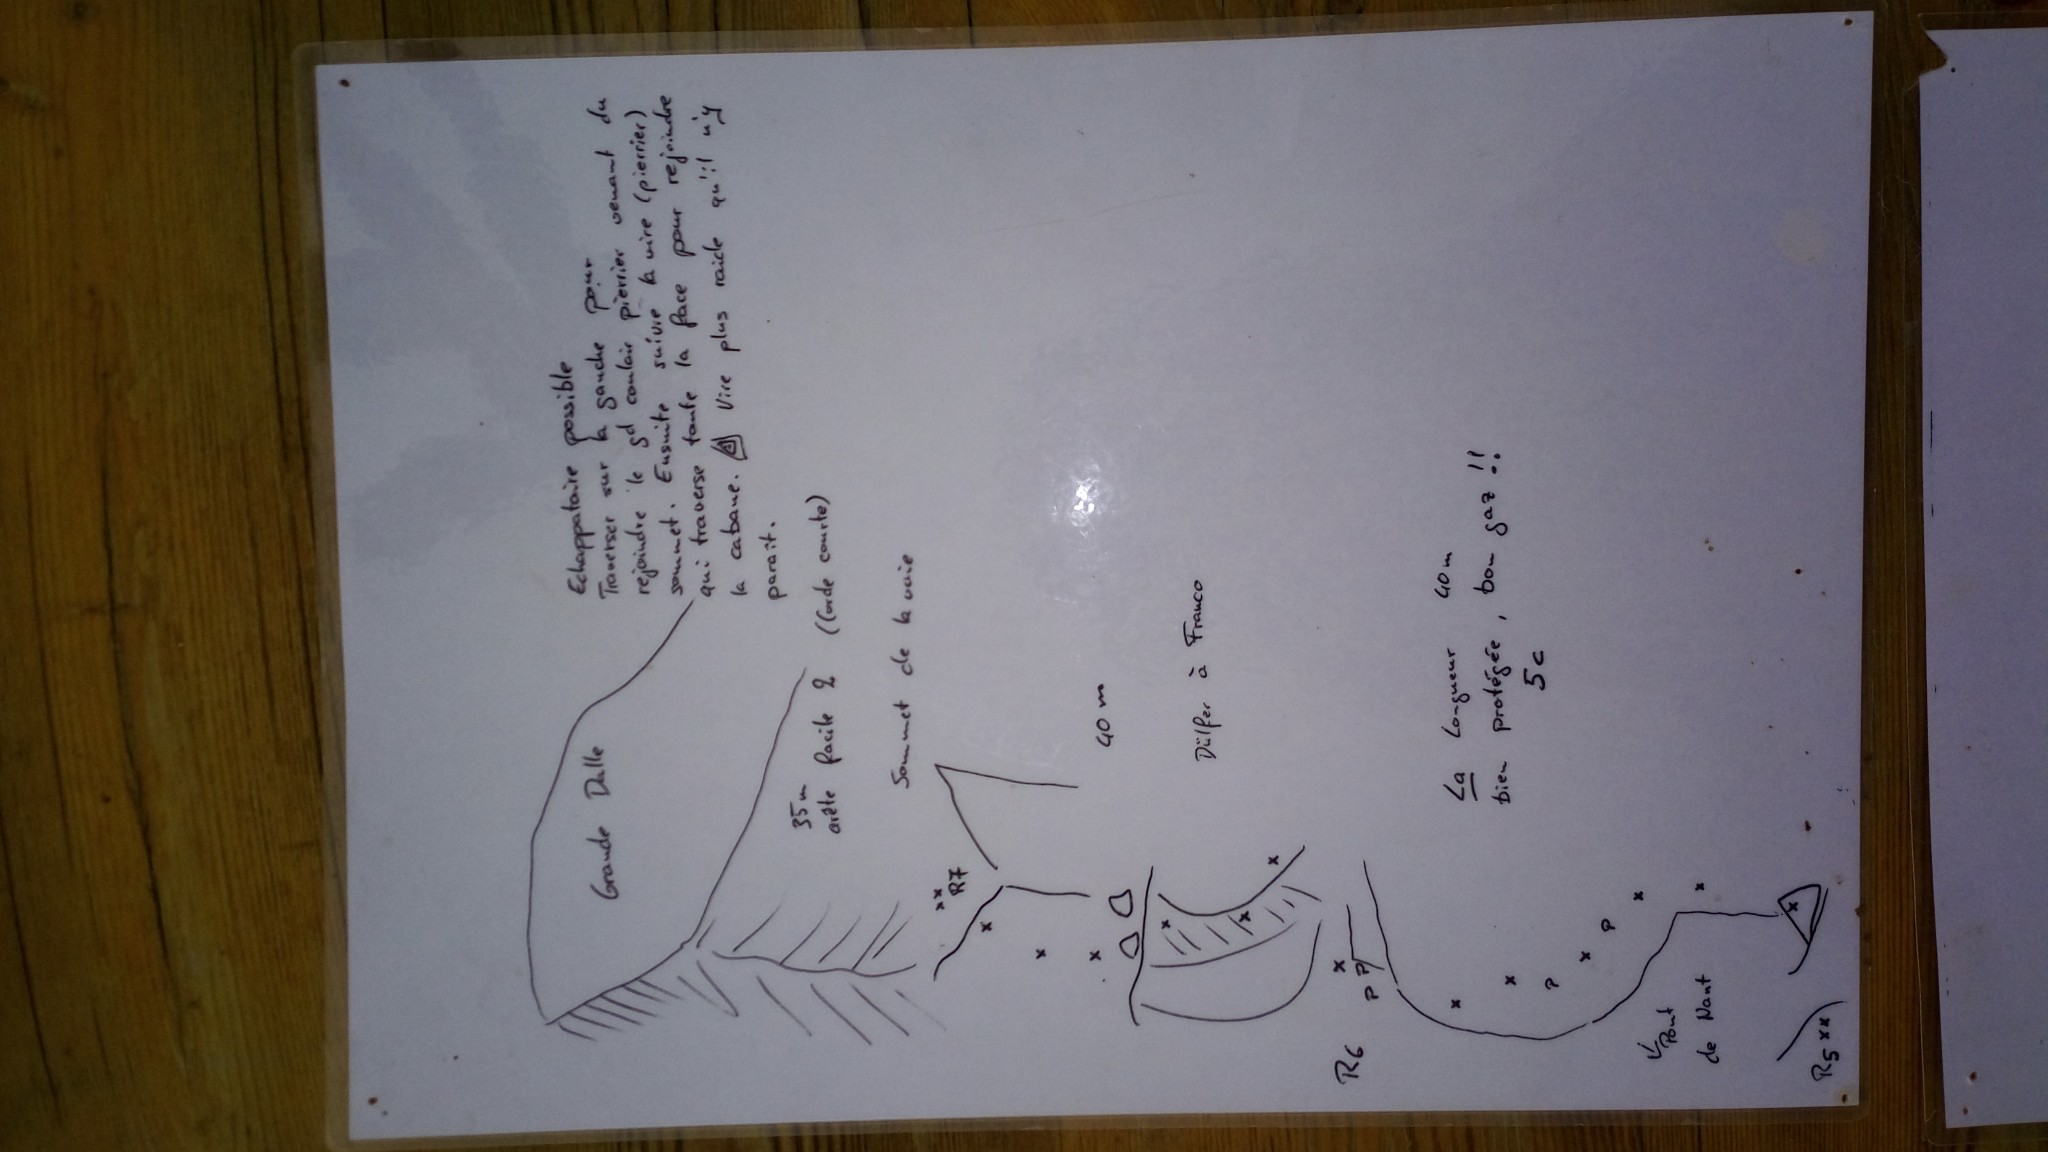 Echappatoire possible
Traverser sur la gauche pour
rejoindre le gd couloir pierrier venant du
sommet. Ensuite suivre la vire (pierrier)
qui traverse toute la face pour rejoindre
la cabane. Vire plus raide qu'il n'y
parait.
Grande Dalle
35m
arête facile 2 (Corde courte)
Sommet de la voie
xx
R7
x
x
x
40m
x
x
x
Dülfer à Franco
x
P P
R6
La Longueur 40m
bien protégée, bon gaz !!
5c
x
x
P
x
P
x
x
Pont
de Nant
x
R5 xx